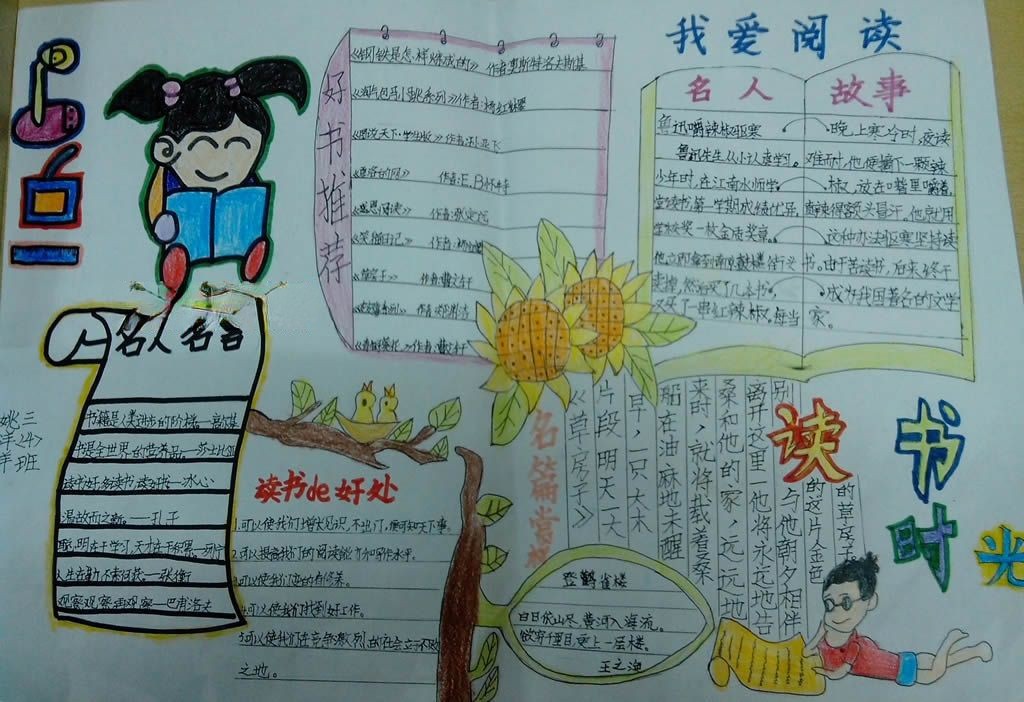 我爱阅读
好书推荐
《钢铁是怎样炼成的》 作者:奥斯特洛夫斯基
《淘气包马小跳系列》作者:杨红樱
作者:E.B怀特
《感恩阅读》
《笑猫日记》 作者:杨红樱
《草房子》 作者:曹文轩
作者:曹文轩
名人故事
鲁迅嚼辣椒驱寒
鲁迅先生从小认真学习。
少年时,在江南水师学
堂读书,第一学期成绩优异,
学校奖一枚金质奖章。
他立即拿到南京鼓楼街头
卖掉,然后买了几本书,
又买了一串红辣椒。每当
晚上寒冷时,夜读
难耐时,他便摘下一颗辣
椒,放在嘴里嚼着,
直辣得额头冒汗。他就用
这种办法驱寒坚持读
书。由于苦读书,后来终于
成为我国著名的文学
家。
名人名言
书籍是人类进步的阶梯。—高尔基
书是全世界的营养品。—莎士比亚
读书好,多读书,读好书。—冰心
温故而知新。——孔子
聪明在于学习,天才在于积累。
人生在勤,不索何获—张衡
观察观察再观察—巴甫洛夫
三(4)班
读书de好处
1.可以使我们增长见识,不出门,便可知天下事。
2.可以提高我们的阅读能力和写作水平。
3.可以使我们变的有修养。
4.可以使我们找到好工作。
5.可以使我们在竞争激烈的社会立于不败
之地。
名篇赏析
《草房子》
片段 明天一大
早,一只大木
船在油麻地未醒
来时,就将载着桑
桑和他的家,远远地
离开这里—他将永远地告
别
与他朝夕相伴
的这片金色
的草房子
登鹳雀楼
白日依山尽,黄河入海流。
欲穷千里目,更上一层楼。
王之涣
读书时光